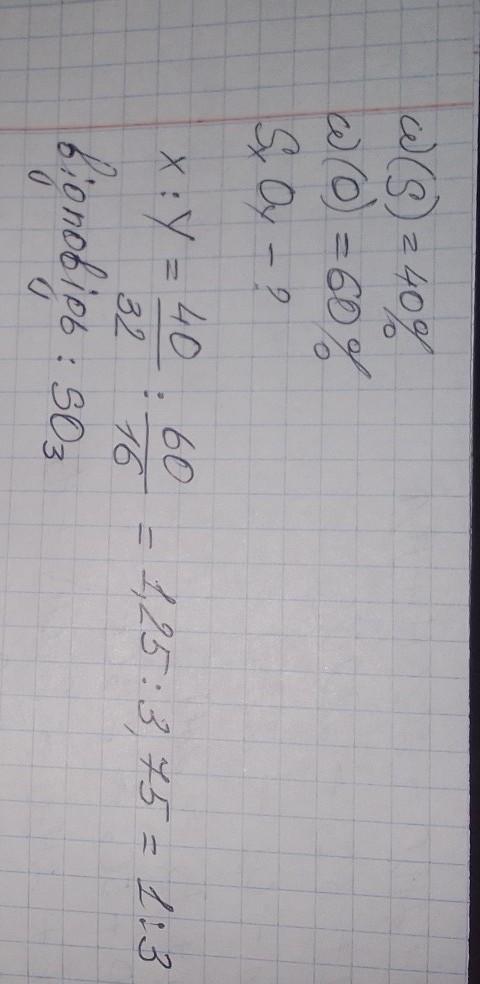 w(S) = 40%
w(O) = 60%
SxOy - ?
x : y = 40/32 : 60/16 = 1,25 : 3,75 = 1 : 3
Відповідь : SO3